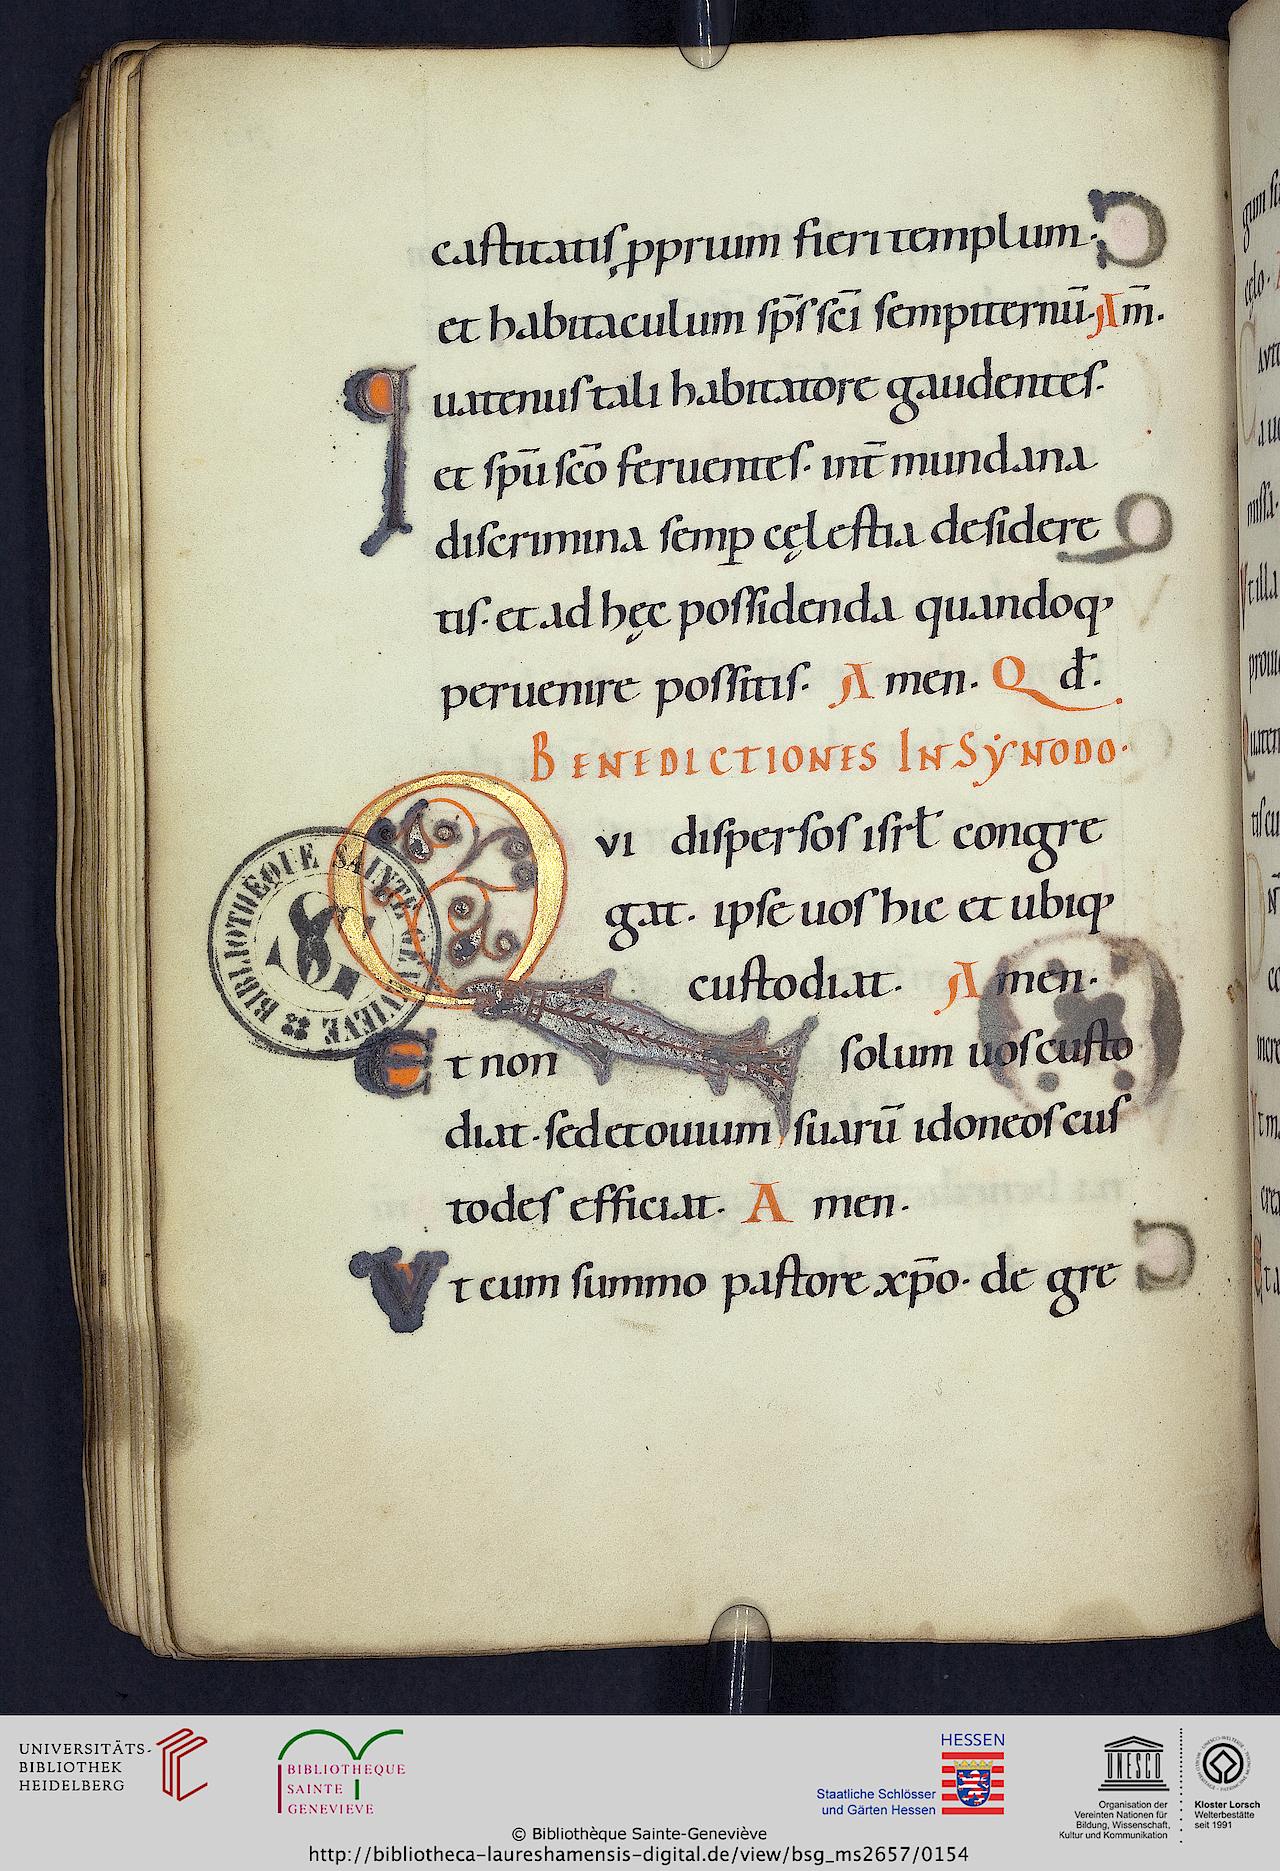 castitatis ꝓprium fieri templum·
et habitaculum sp̄s sc̄i sempiternū· Am̄.
quatenus tali habitatore gaudentes·
et spū sc̄o feruentes· int̄ mundana
discrimina semꝑ cęlestia desidere
tis· et ad hęc possidenda quandoq;
peruenire possitis· Amen· Q d̄.
BENEDICTIONES IN SẎNODO·
QVI dispersos isrl̄ congre
gat· ipse uos hic et ubiq;
custodiat· Amen·
Et non solum uos custo
diat· sed et ouium suarū idoneos cus
todes efficiat· Amen·
Vt cum summo pastore xp̄o· de gre
BIBLIOTHÈQUE SAINTE GENEVIEVE
UNIVERSITÄTS-
BIBLIOTHEK
HEIDELBERG
BIBLIOTHEQUE
SAINTE
GENEVIEVE
HESSEN
Staatliche Schlösser
und Gärten Hessen
UNESCO
Organisation der
Vereinten Nationen für
Bildung, Wissenschaft,
Kultur und Kommunikation
Kloster Lorsch
Welterbestätte
seit 1991
© Bibliothèque Sainte-Geneviève
http://bibliotheca-laureshamensis-digital.de/view/bsg_ms2657/0154